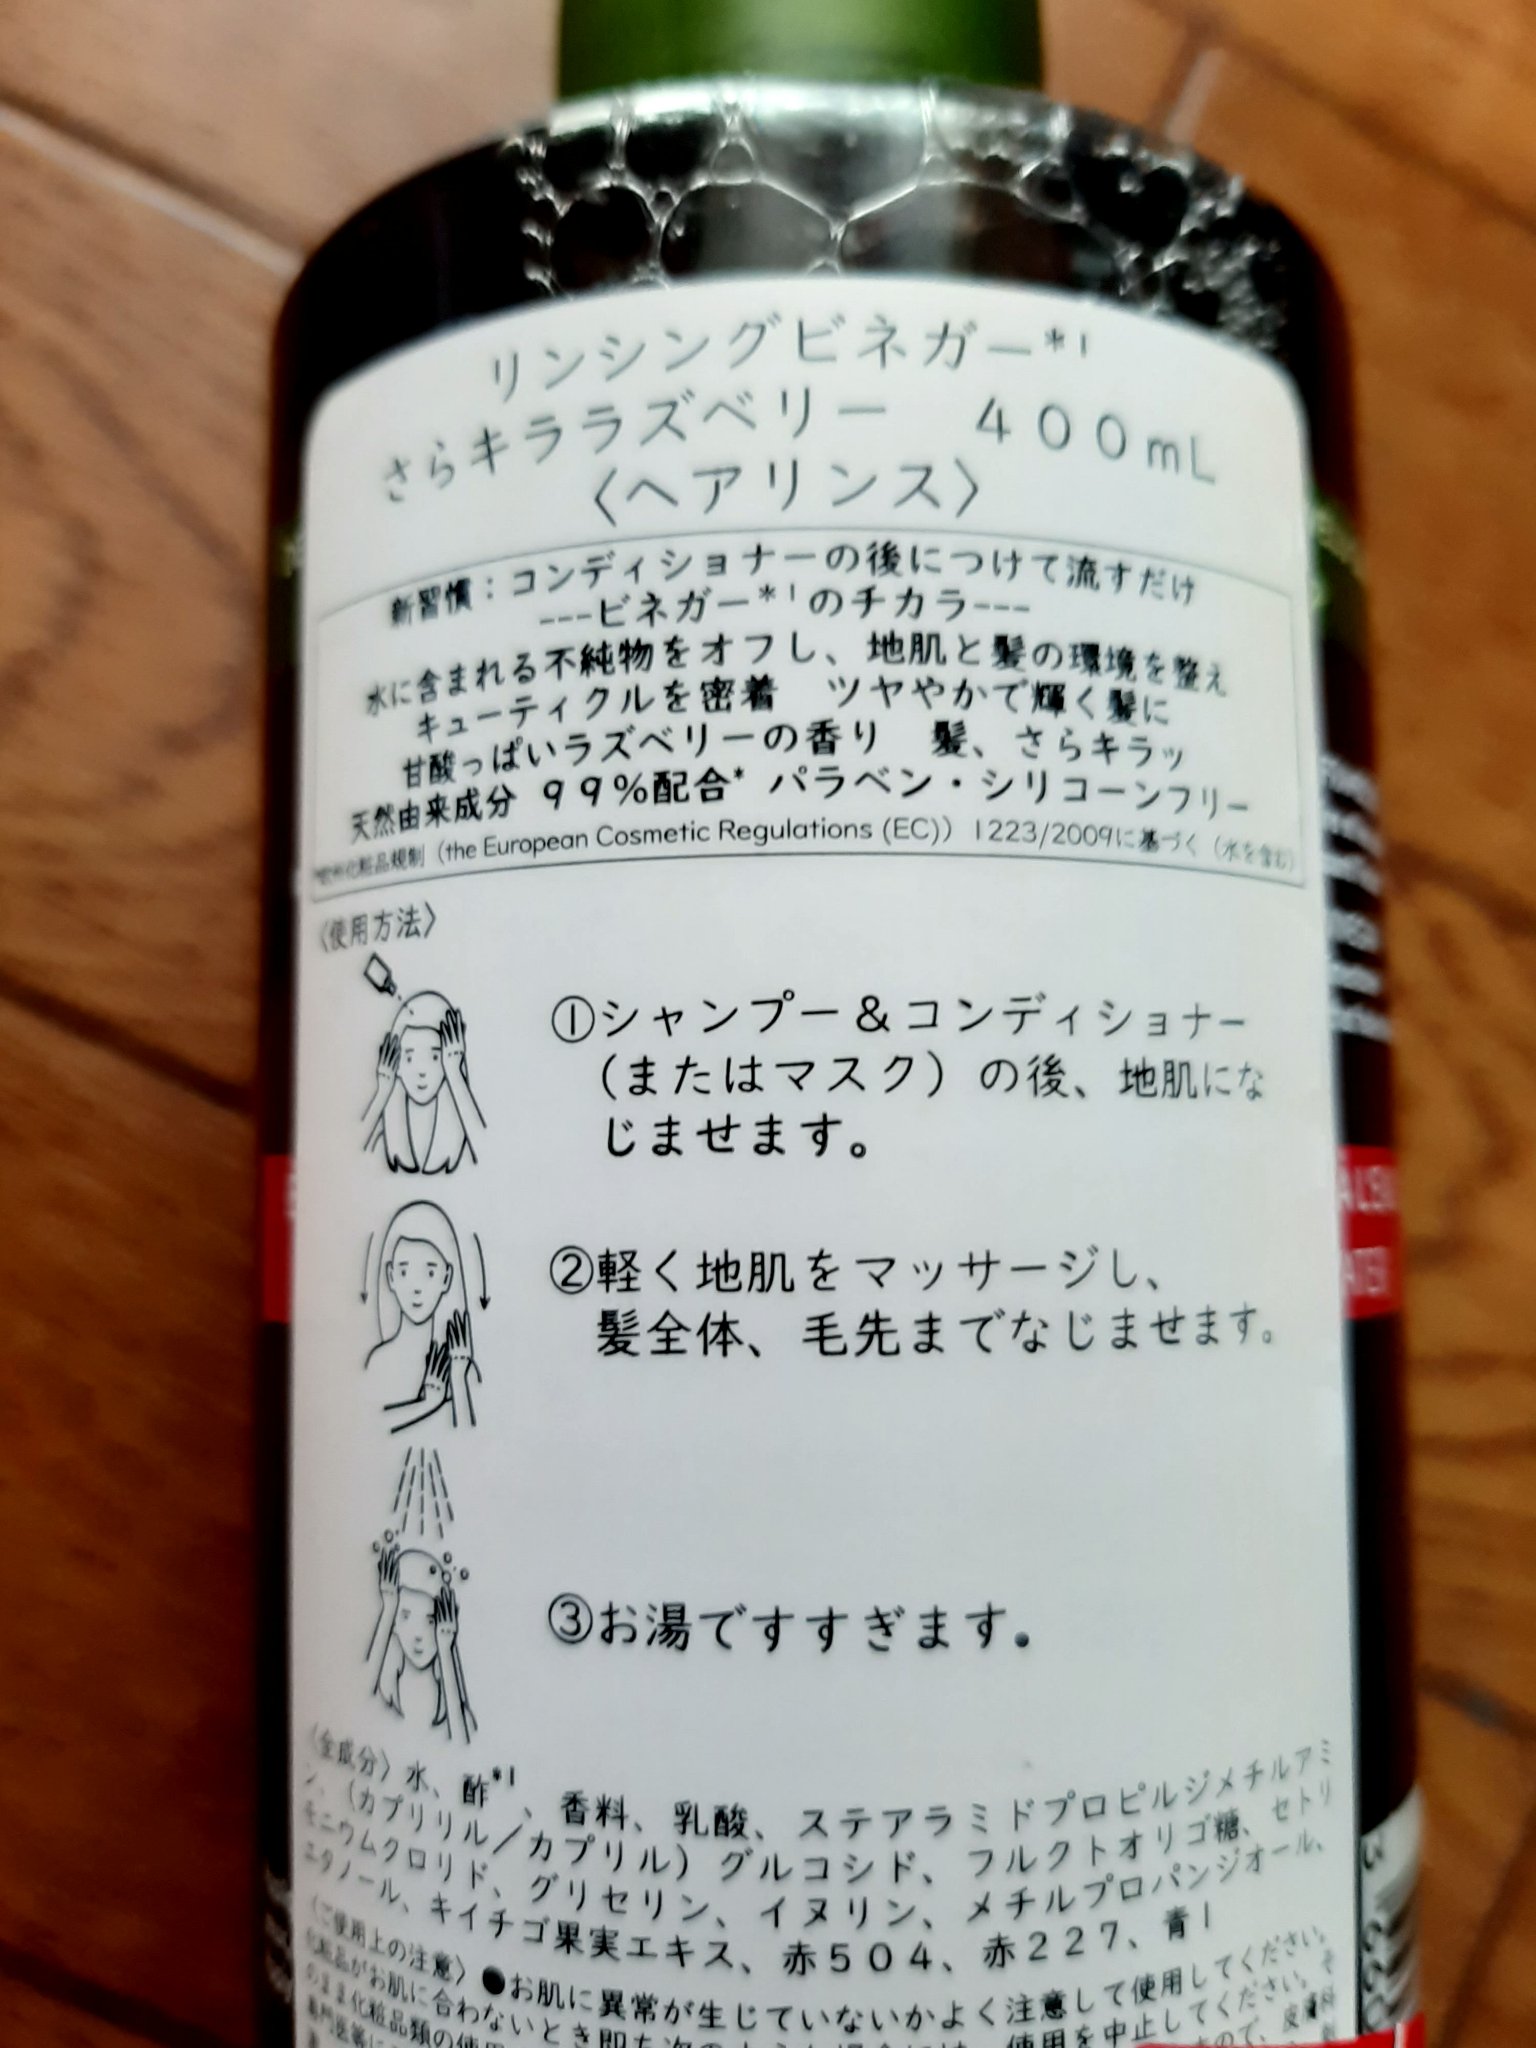 リンシングビネガー*1
さらキララズベリー　400mL
〈ヘアリンス〉
新習慣：コンディショナーの後につけて流すだけ
---ビネガー*1のチカラ---
水に含まれる不純物をオフし、地肌と髪の環境を整え
キューティクルを密着　ツヤやかで輝く髪に
甘酸っぱいラズベリーの香り　髪、さらキラッ
天然由来成分 99%配合* パラベン・シリコーンフリー
*欧州化粧品規制（the European Cosmetic Regulations (EC)）1223/2009に基づく（水を含む）
〈使用方法〉
①シャンプー＆コンディショナー
(またはマスク）の後、地肌にな
じませます。
②軽く地肌をマッサージし、
髪全体、毛先までなじませます。
③お湯ですすぎます。
〈全成分〉水、酢*1、香料、乳酸、ステアラミドプロピルジメチルアミ
ン、（カプリリル／カプリル）グルコシド、フルクトオリゴ糖、セトリ
モニウムクロリド、グリセリン、イヌリン、メチルプロパンジオール、
エタノール、キイチゴ果実エキス、赤504、赤227、青1
〈ご使用上の注意〉●お肌に異常が生じていないかよく注意して使用してください。
化粧品がお肌に合わないとき即ち次の
使用を中止してください。そ
のまま化粧品類の使用
ので、皮膚科
専門医等に